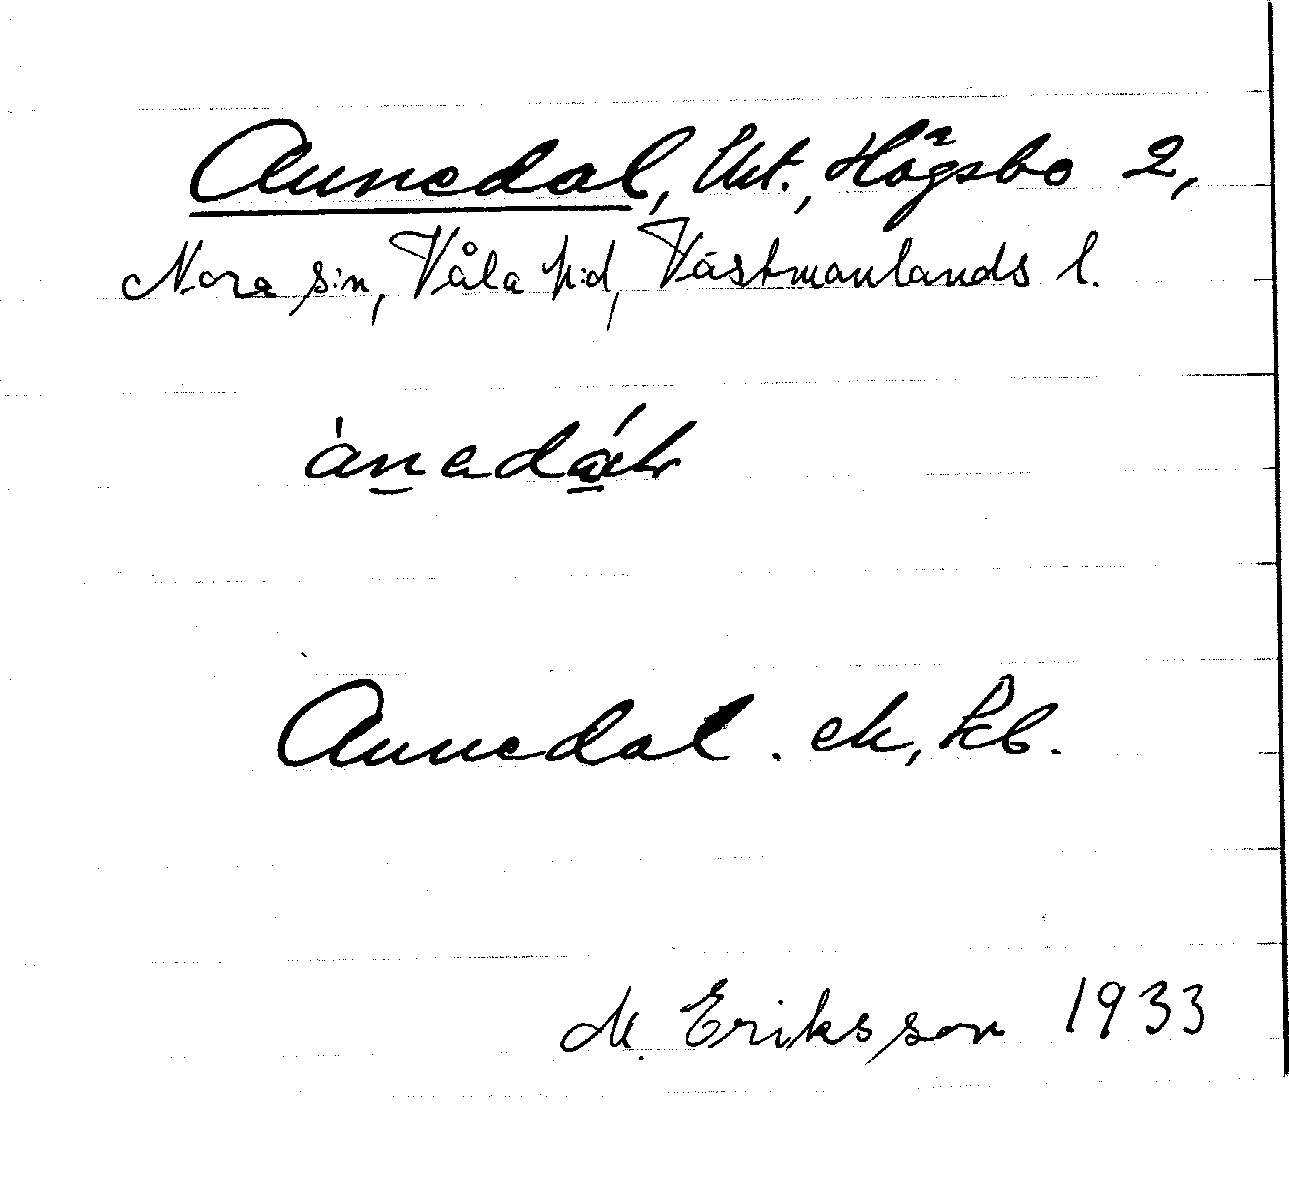 Annedal, Utt., Högsbo 2,
Nora s:n, Våla h:d, Västmanlands l.
Annedal. ek, kb.
M. Eriksson 1933